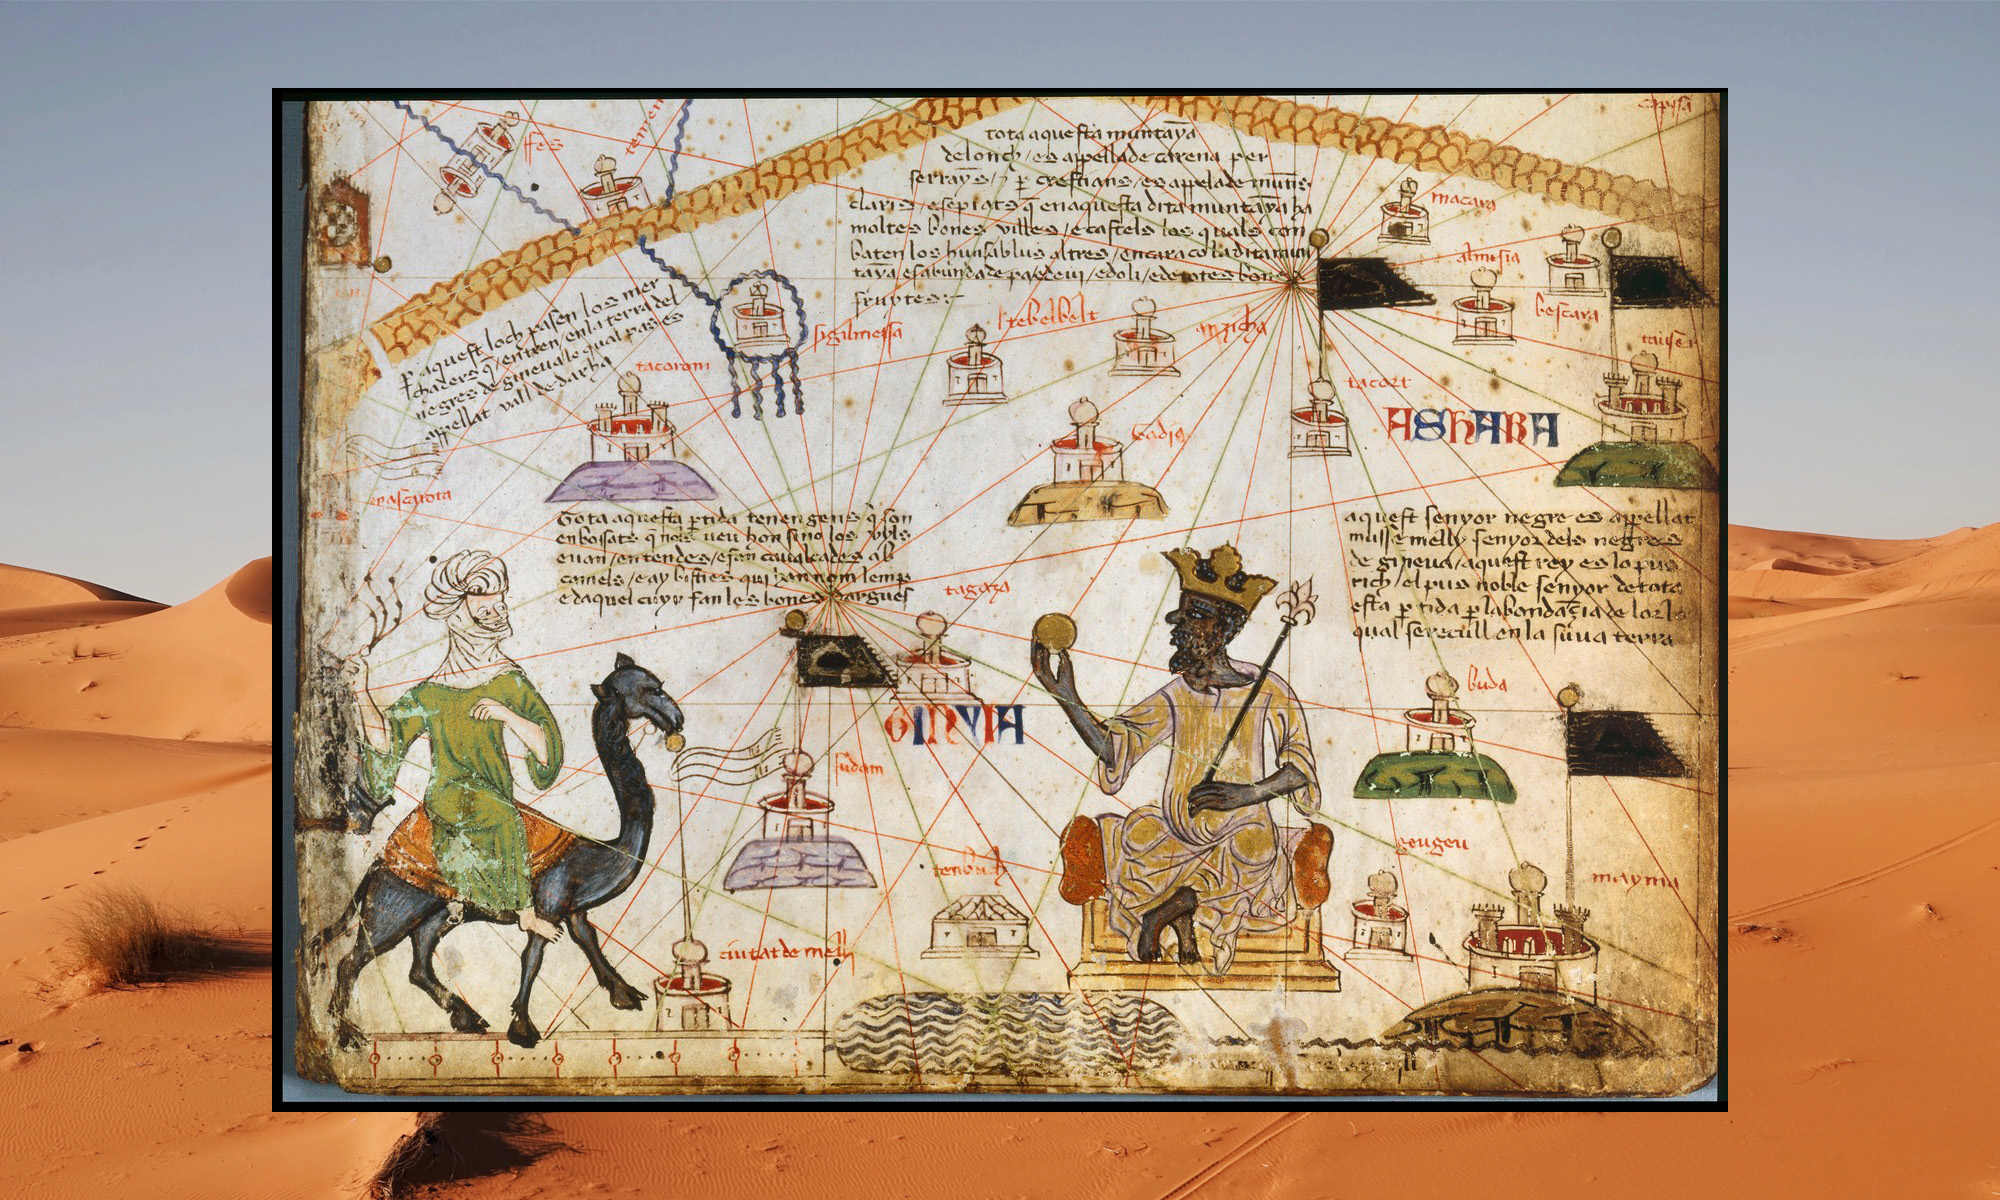 fes
tota aquesta muntaya
de lonch / es appellade carena per
serrayns / e per crestians / es appelade muntis
claris / e sepiats q̄ en aquesta dita muntaya ha
moltes bones villes / e castels los quals con
baten los huns ab lus altres / encara co la dita mun
taya es abunda de pa e de vi / e d oli / e de totes bones
fruytes :-
macara
almsia
bescara
p̱ aquest loch pasen los mer
chaders q̄ / entren / en la terra del
negres de gineua lo qual pas es
appellat vall de darha
sigilmessa
tebelbelt
tacorom
tacort
ASHARA
mascarota
Tota aquesta ptida tenen gens q̄ son
enboçats q̄ nols veu hom sino los vyls
e van / en tendes / e fan caualcades ab
camels / e ay bisties qui han nom lemp
e daquel cuyr fan les bones dargues
aquest senyor negre es appellat
musse melly senyor dels negres
de gineua / aquest rey es lo pus
rich / el pus noble senyor de tota
esta ptida p labondaçia de lor lo
qual se recull en la sua terra
tagaza
GINVIA
buda
sudam
geugeu
tenbuch
mayma
ciutat de melli